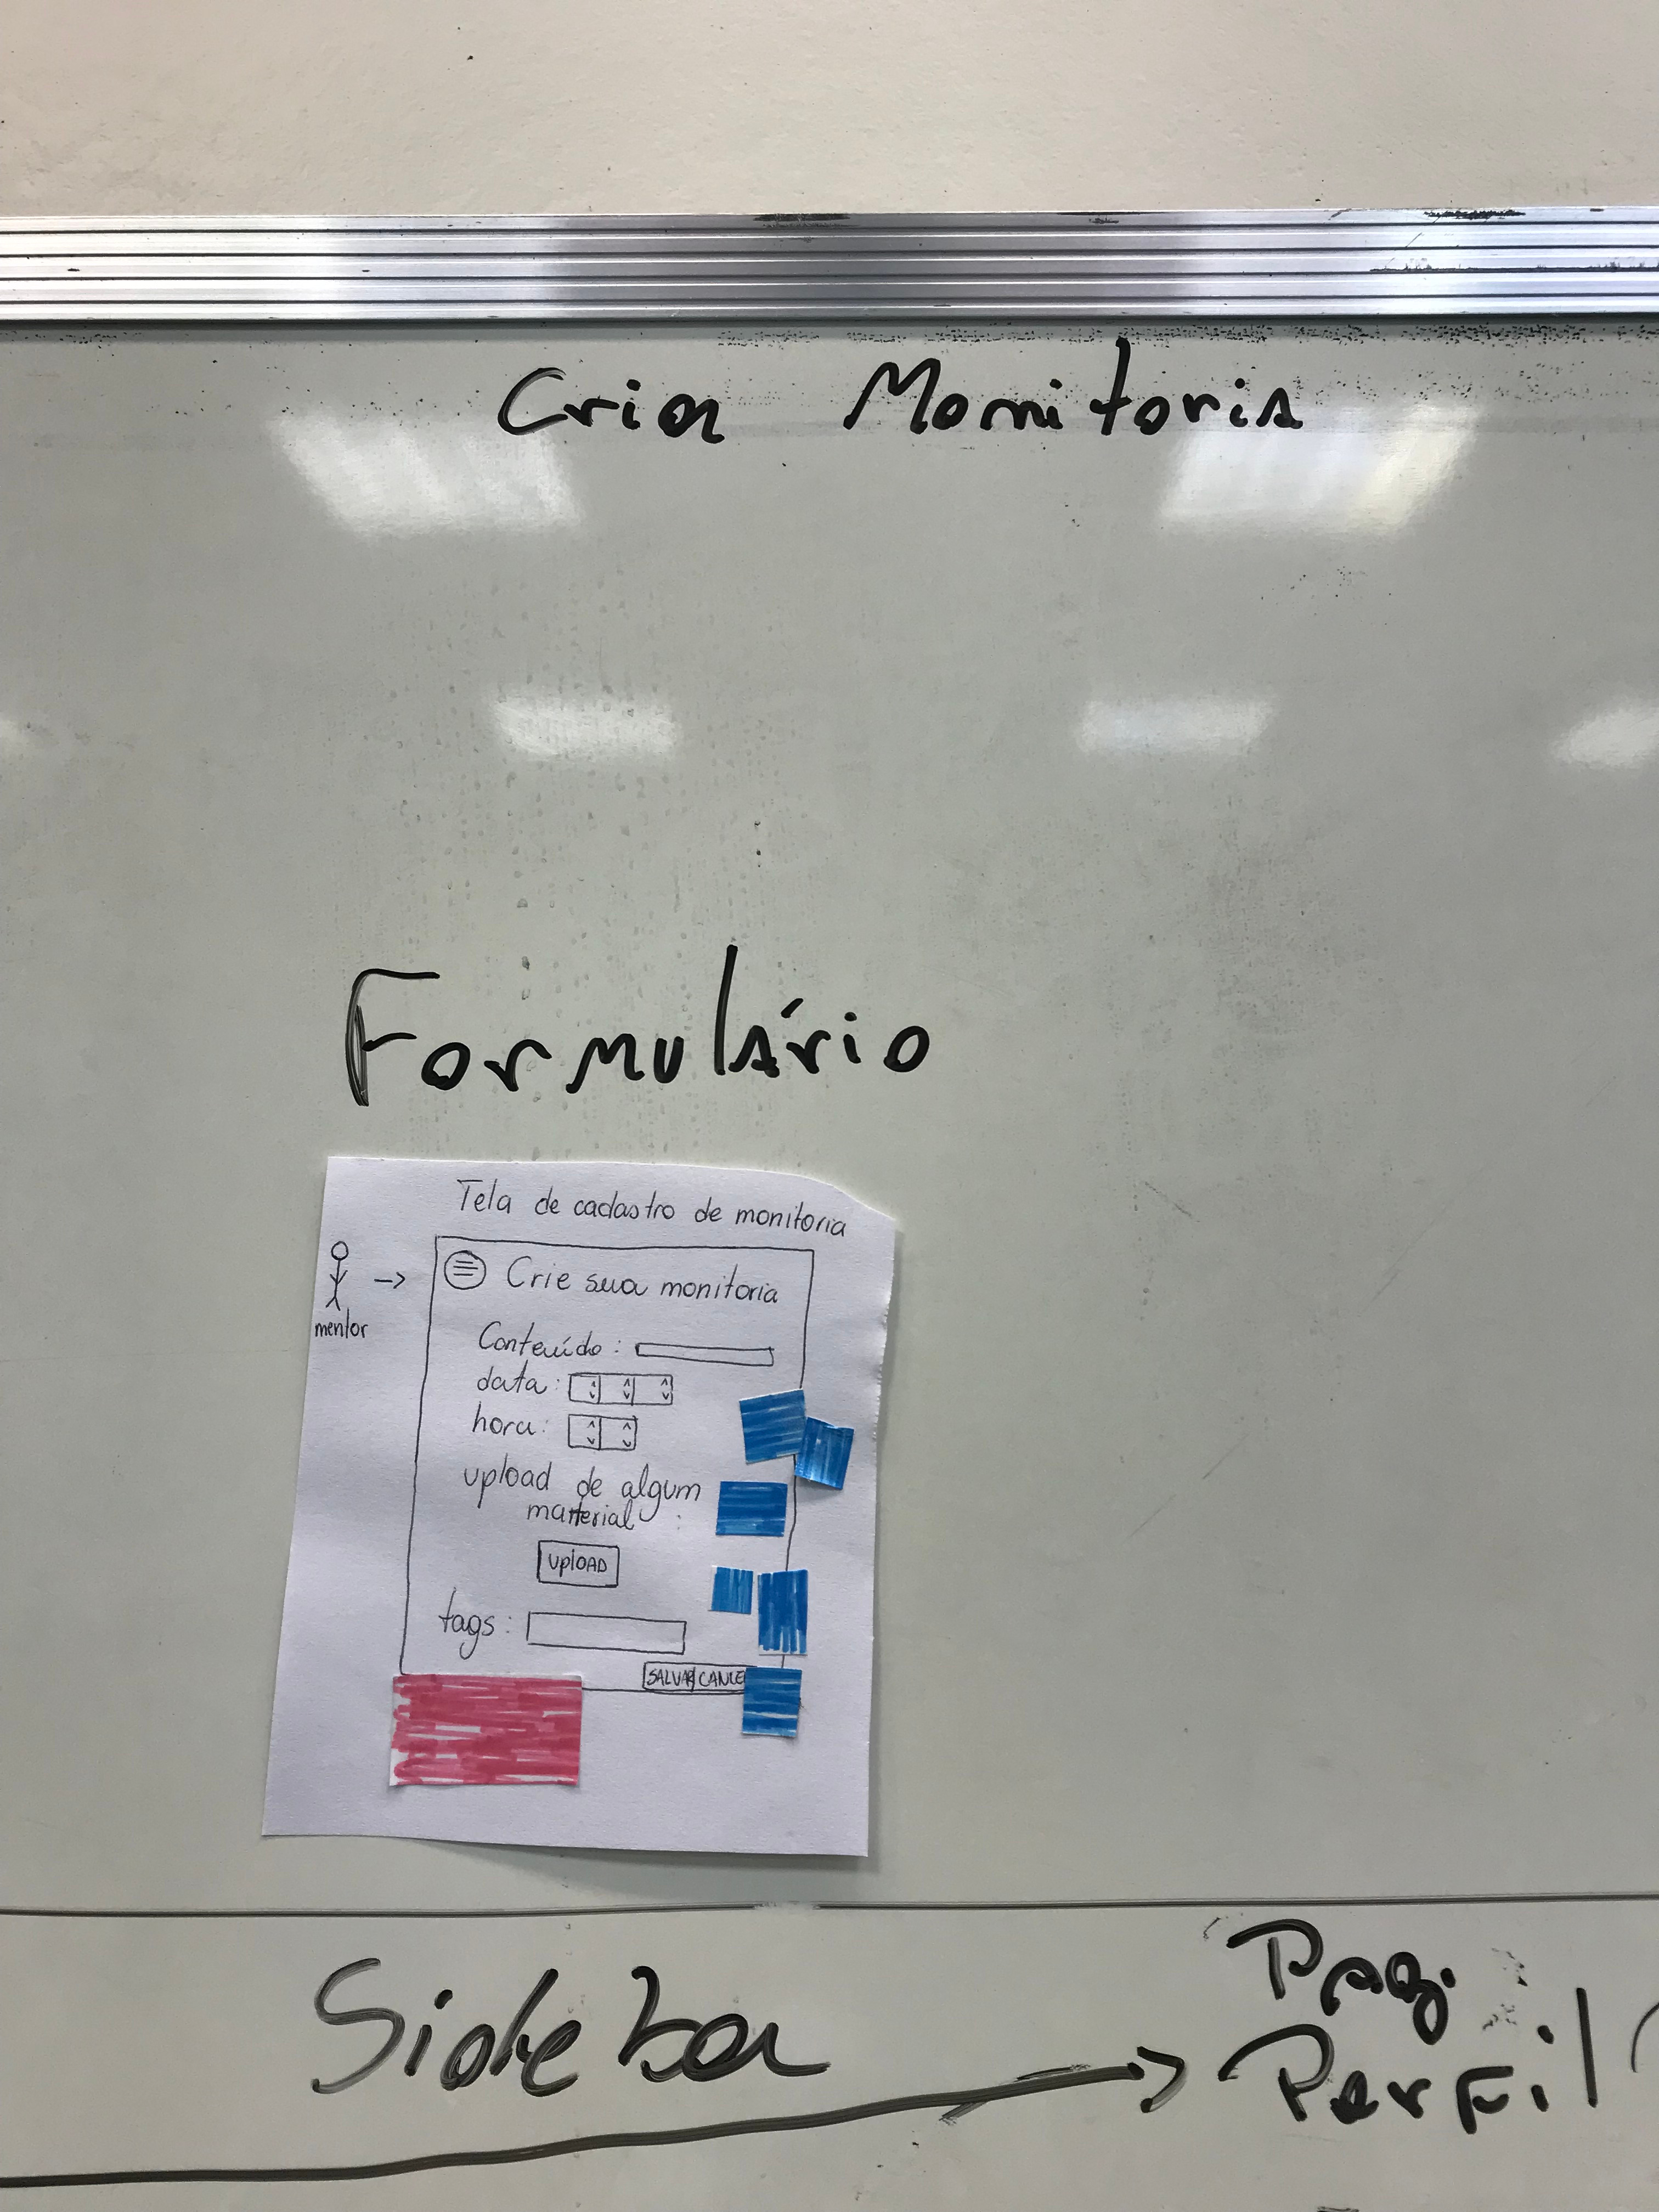 Cria Monitoria
Formulário
Tela de cadastro de monitoria
mentor
Crie sua monitoria
Conteúdo:
data:
hora:
upload de algum
material:
UPLOAD
tags:
SALVAR CANCE
Sidebar
Pag.
Perfil